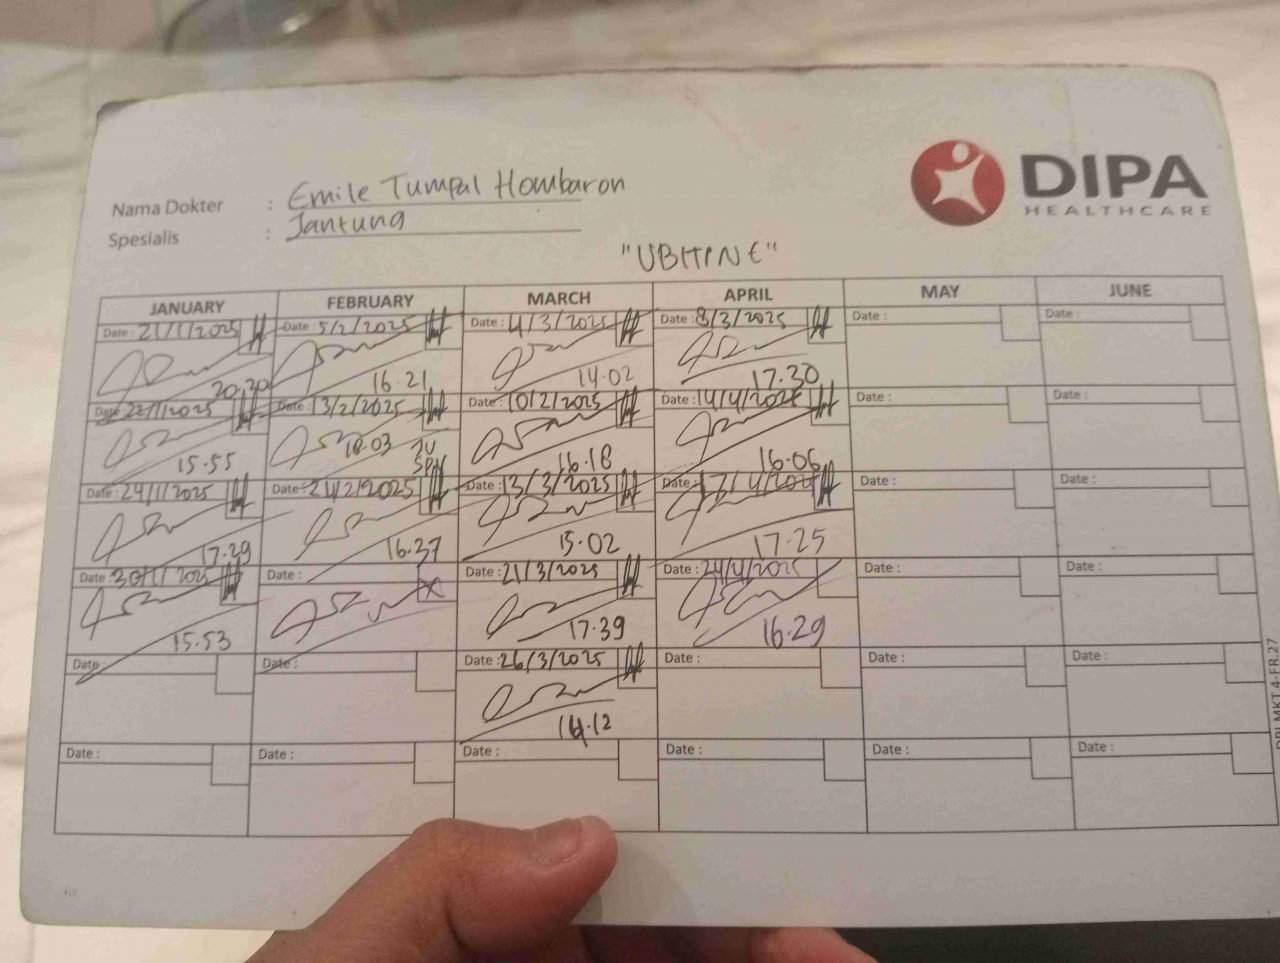 DIPA
HEALTHCARE
Nama Dokter : Emile Tumpal Hombaron
Spesialis : Jantung
"UBITINE"
JANUARY FEBRUARY MARCH APRIL MAY JUNE
Date : 21/1/2025 Date : 5/2/2025 Date : 4/3/2025 Date : 8/3/2025 Date : Date :
20.30 16.21 14.02 17.30
Date : 22/1/2025 Date : 13/2/2025 Date : 10/2/2025 Date : 14/4/2025 Date : Date :
15.55 18.03 16.18 16.06
Date : 24/1/2025 Date : 21/2/2025 Date : 13/3/2025 Date : 17/4/2025 Date : Date :
17.29 16.37 15.02 17.25
Date : 30/1/2025 Date : Date : 21/3/2025 Date : 24/4/2025 Date : Date :
15.53 17.39 16.29
Date : Date : Date : 26/3/2025 Date : Date : Date :
14.12
Date : Date : Date : Date : Date : Date :